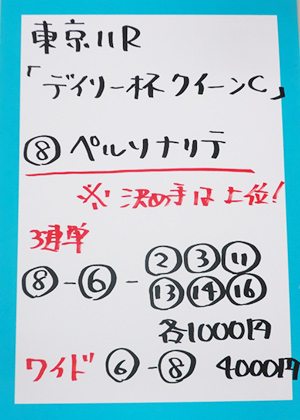 東京11R
「デイリー杯クイーンC」
⑧ペルソナリテ
※決め手は上位!
3連単
⑧-⑥-②③⑪
⑬⑭⑯
各1000円
ワイド ⑥-⑧ 4000円